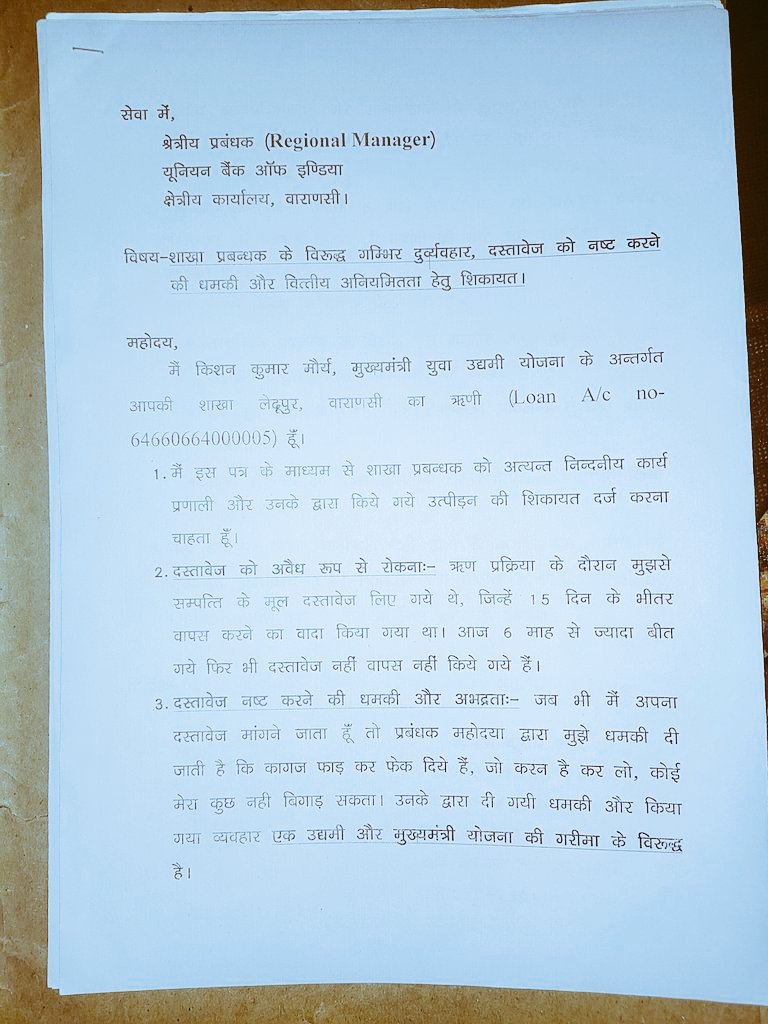 सेवा में,
श्रेत्रीय प्रबंधक (Regional Manager)
यूनियन बैंक ऑफ इण्डिया
क्षेत्रीय कार्यालय, वाराणसी।
विषय-शाखा प्रबन्धक के विरूद्ध गम्भिर दुर्व्यवहार, दस्तावेज को नष्ट करने
की धमकी और वित्तीय अनियमितता हेतु शिकायत।
महोदय,
मैं किशन कुमार मौर्य, मुख्यमंत्री युवा उद्यमी योजना के अन्तर्गत
आपकी शाखा लेढूपुर, वाराणसी का ऋणी (Loan A/c no-
64660664000005) हूँ।
1. मैं इस पत्र के माध्यम से शाखा प्रबन्धक को अत्यन्त निन्दनीय कार्य
प्रणाली और उनके द्वारा किये गये उत्पीड़न की शिकायत दर्ज करना
चाहता हूँ।
2. दस्तावेज को अवैध रूप से रोकनाः- ऋण प्रक्रिया के दौरान मुझसे
सम्पत्ति के मूल दस्तावेज लिए गये थे, जिन्हें 15 दिन के भीतर
वापस करने का वादा किया गया था। आज 6 माह से ज्यादा बीत
गये फिर भी दस्तावेज नहीं वापस नहीं किये गये हैं।
3. दस्तावेज नष्ट करने की धमकी और अभद्रताः- जब भी मैं अपना
दस्तावेज मांगने जाता हूँ तो प्रबंधक महोदया द्वारा मुझे धमकी दी
जाती है कि कागज फाड़ कर फेक दिये हैं, जो करन है कर लो, कोई
मेरा कुछ नही बिगाड़ सकता। उनके द्वारा दी गयी धमकी और किया
गया व्यवहार एक उद्यमी और मुख्यमंत्री योजना की गरीमा के विरूद्ध
है।